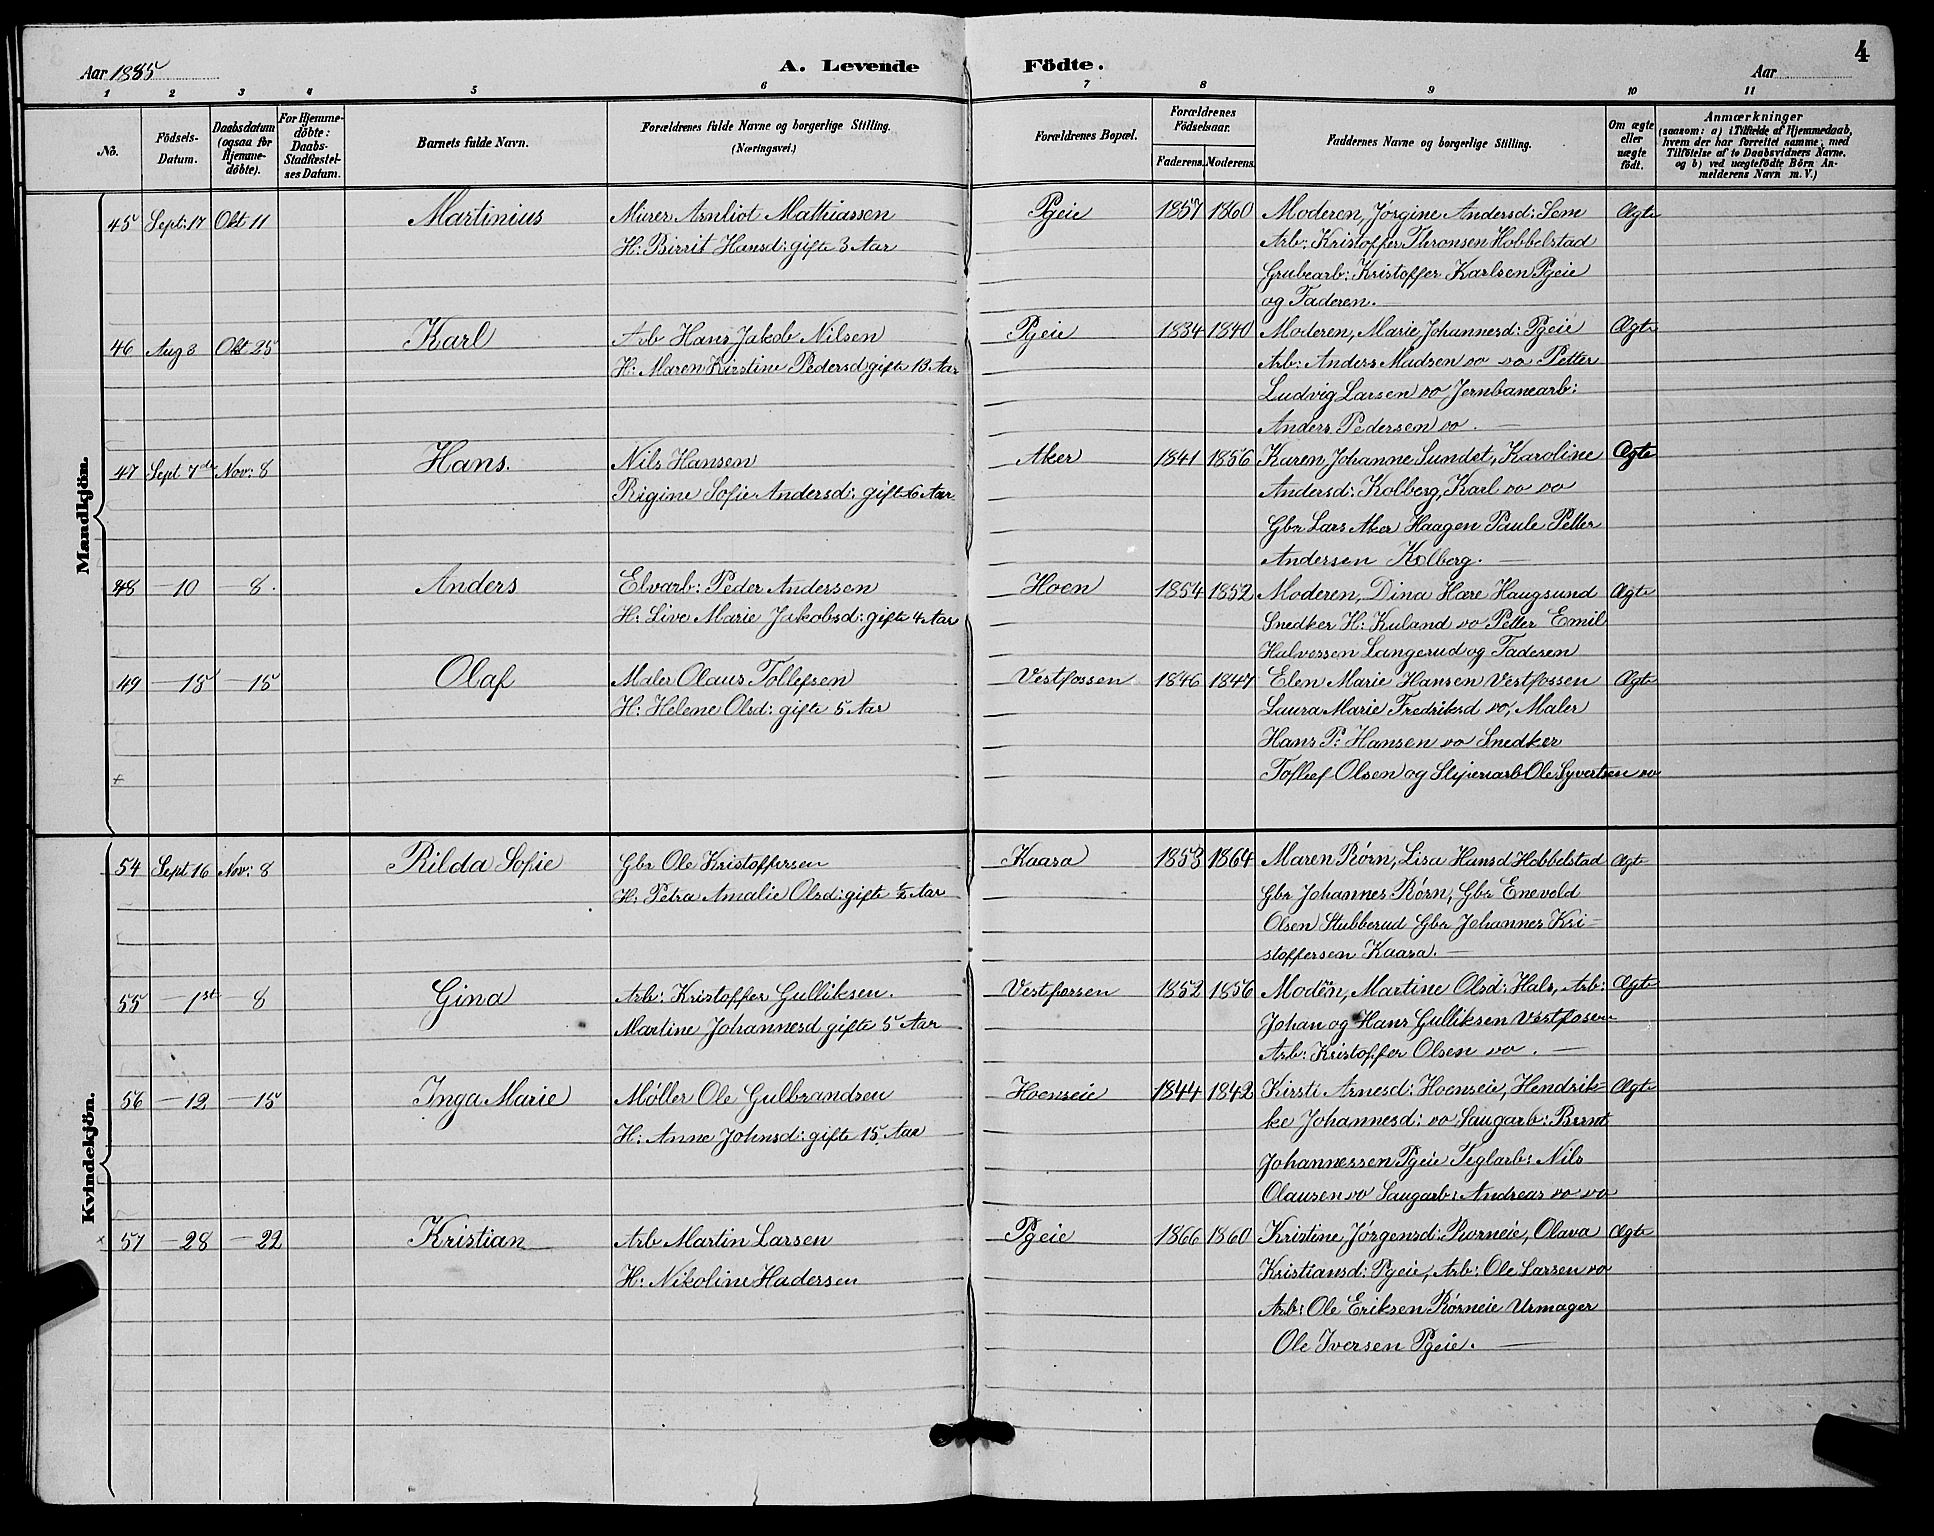 Aar 1885
A. Levende Födte.
Aar
4
1 2 3 4 5 6 7 8 9 10 11
No.
Födsels-Datum.
Daabsdatum (ogsaa for Hjemme-döbte).
For Hjemme-döbte: Daabs-Stadfæstel-ses Datum.
Barnets fulde Navn.
Forældrenes fulde Navne og borgerlige Stilling.
(Næringsvei.)
Forældrenes Bopæl.
Forældrenes Födselsaar.
Faderens. Moderens.
Faddernes Navne og borgerlige Stilling.
Om ægte eller uægte födt.
Anmærkninger
(saasom: a) i Tilfælde af Hjemmedaab,
hvem der har forrettet samme, med
Tilföielse af to Daabsvidners Navne,
og b) ved uægtefödte Börn An-
melderens Navn m. V.)
Mandkjön.
45 Sept: 17 Okt 11 Martinius Murer Arnliot Mathiassen Pgeie 1857 1860 Moderen, Jørgine Andersd: Sem Ægte
H: Birrit Hansd: gifte 3 Aar Arb: Kristoffer Thronsen Hobbelstad
Grubearb: Kristoffer Karlsen Pgeie
og Faderen.
46 Aug 3 Okt 25 Karl Arb Hans Jakob Nilsen Pgeie 1834 1840 Moderen, Marie Johannesd: Pgeie Ægte
H: Maren Kirstine Pedersd: gifte 13 Aar Arb: Anders Madsen do do Petter
Ludvig Larsen do Jernbanearb:
Anders Pedersen do.
47 Sept 7de Nov: 8 Hans. Nils Hansen Aker 1841 1856 Karen Johanne Sundet, Karoline Ægte
Rigine Sofie Andersd: gifte 6 Aar Andersd: Kolberg, Karl do do
Gbr Lars Aker Haagen Paule Petter
Andersen Kolberg.
48 — 10 — 8. Anders Elvarb: Peder Andersen Hoen 1854 1852 Moderen, Dina Hære Haugsund Ægte
H: Live Marie Jakobsd: gifte 4 Aar Snedker H: Kuland do Petter Emil
Halvorsen Langerud og Faderen
49 — 15 — 15 Olaf Maler Olaus Tollefsen Vestfossen 1846 1847 Elen Marie Hansen Vestfossen Ægte
H: Helene Olsd: gifte 5 Aar Laura Marie Fredriksd do, Maler
Hans P: Hansen do Snedker
Tofleef Olsen og Sliperiarb Ole Syvertsen do
Kvindekjön.
54 Sept 16 Nov: 8 Rilda Sofie Gbr Ole Kristoffersen Kaara 1853 1864 Maren Rørn, Lisa Hansd Hobbelstad Ægte
H: Petra Amalie Olsd: gifte ½ Aar Gbr Johannes Rørn, Gbr Enevold
Olsen Stubberud Gbr Johannes Kri-
stoffersen Kaara.
55 — 1st — 8 Gina Arb: Kristoffer Gulliksen. Vestfossen 1852 1856 Modën, Martine Olsd: Hals, Arb: Ægte
Martine Johannesd gifte 5 Aar Johan og Hans Gulliksen Vestfosen
Arb: Kristoffer Olsen do.
56 — 12 — 15 Inga Marie Møller Ole Gulbrandsen Hoenseie 1844 1842 Kirsti Arnesd: Hoenseie, Hendrik- Ægte
H: Anne Johnsd: gifte 15 Aar ke Johannesd: do Saugarb: Bernt
Johannessen Pgeie Teglarb: Nils
Olausen do Saugarb: Andreas do do
57 — 28 — 22 Kristian Arb Martin Larsen Pgeie 1866 1860 Kristine Jørgensd: Rorneie, Olava Ægte
H: Nikoline Hadersen Kristiansd: Pgeie, Arb: Ole Larsen do
Arb: Ole Eriksen Rørneie Urmager
Ole Iversen Pgeie.